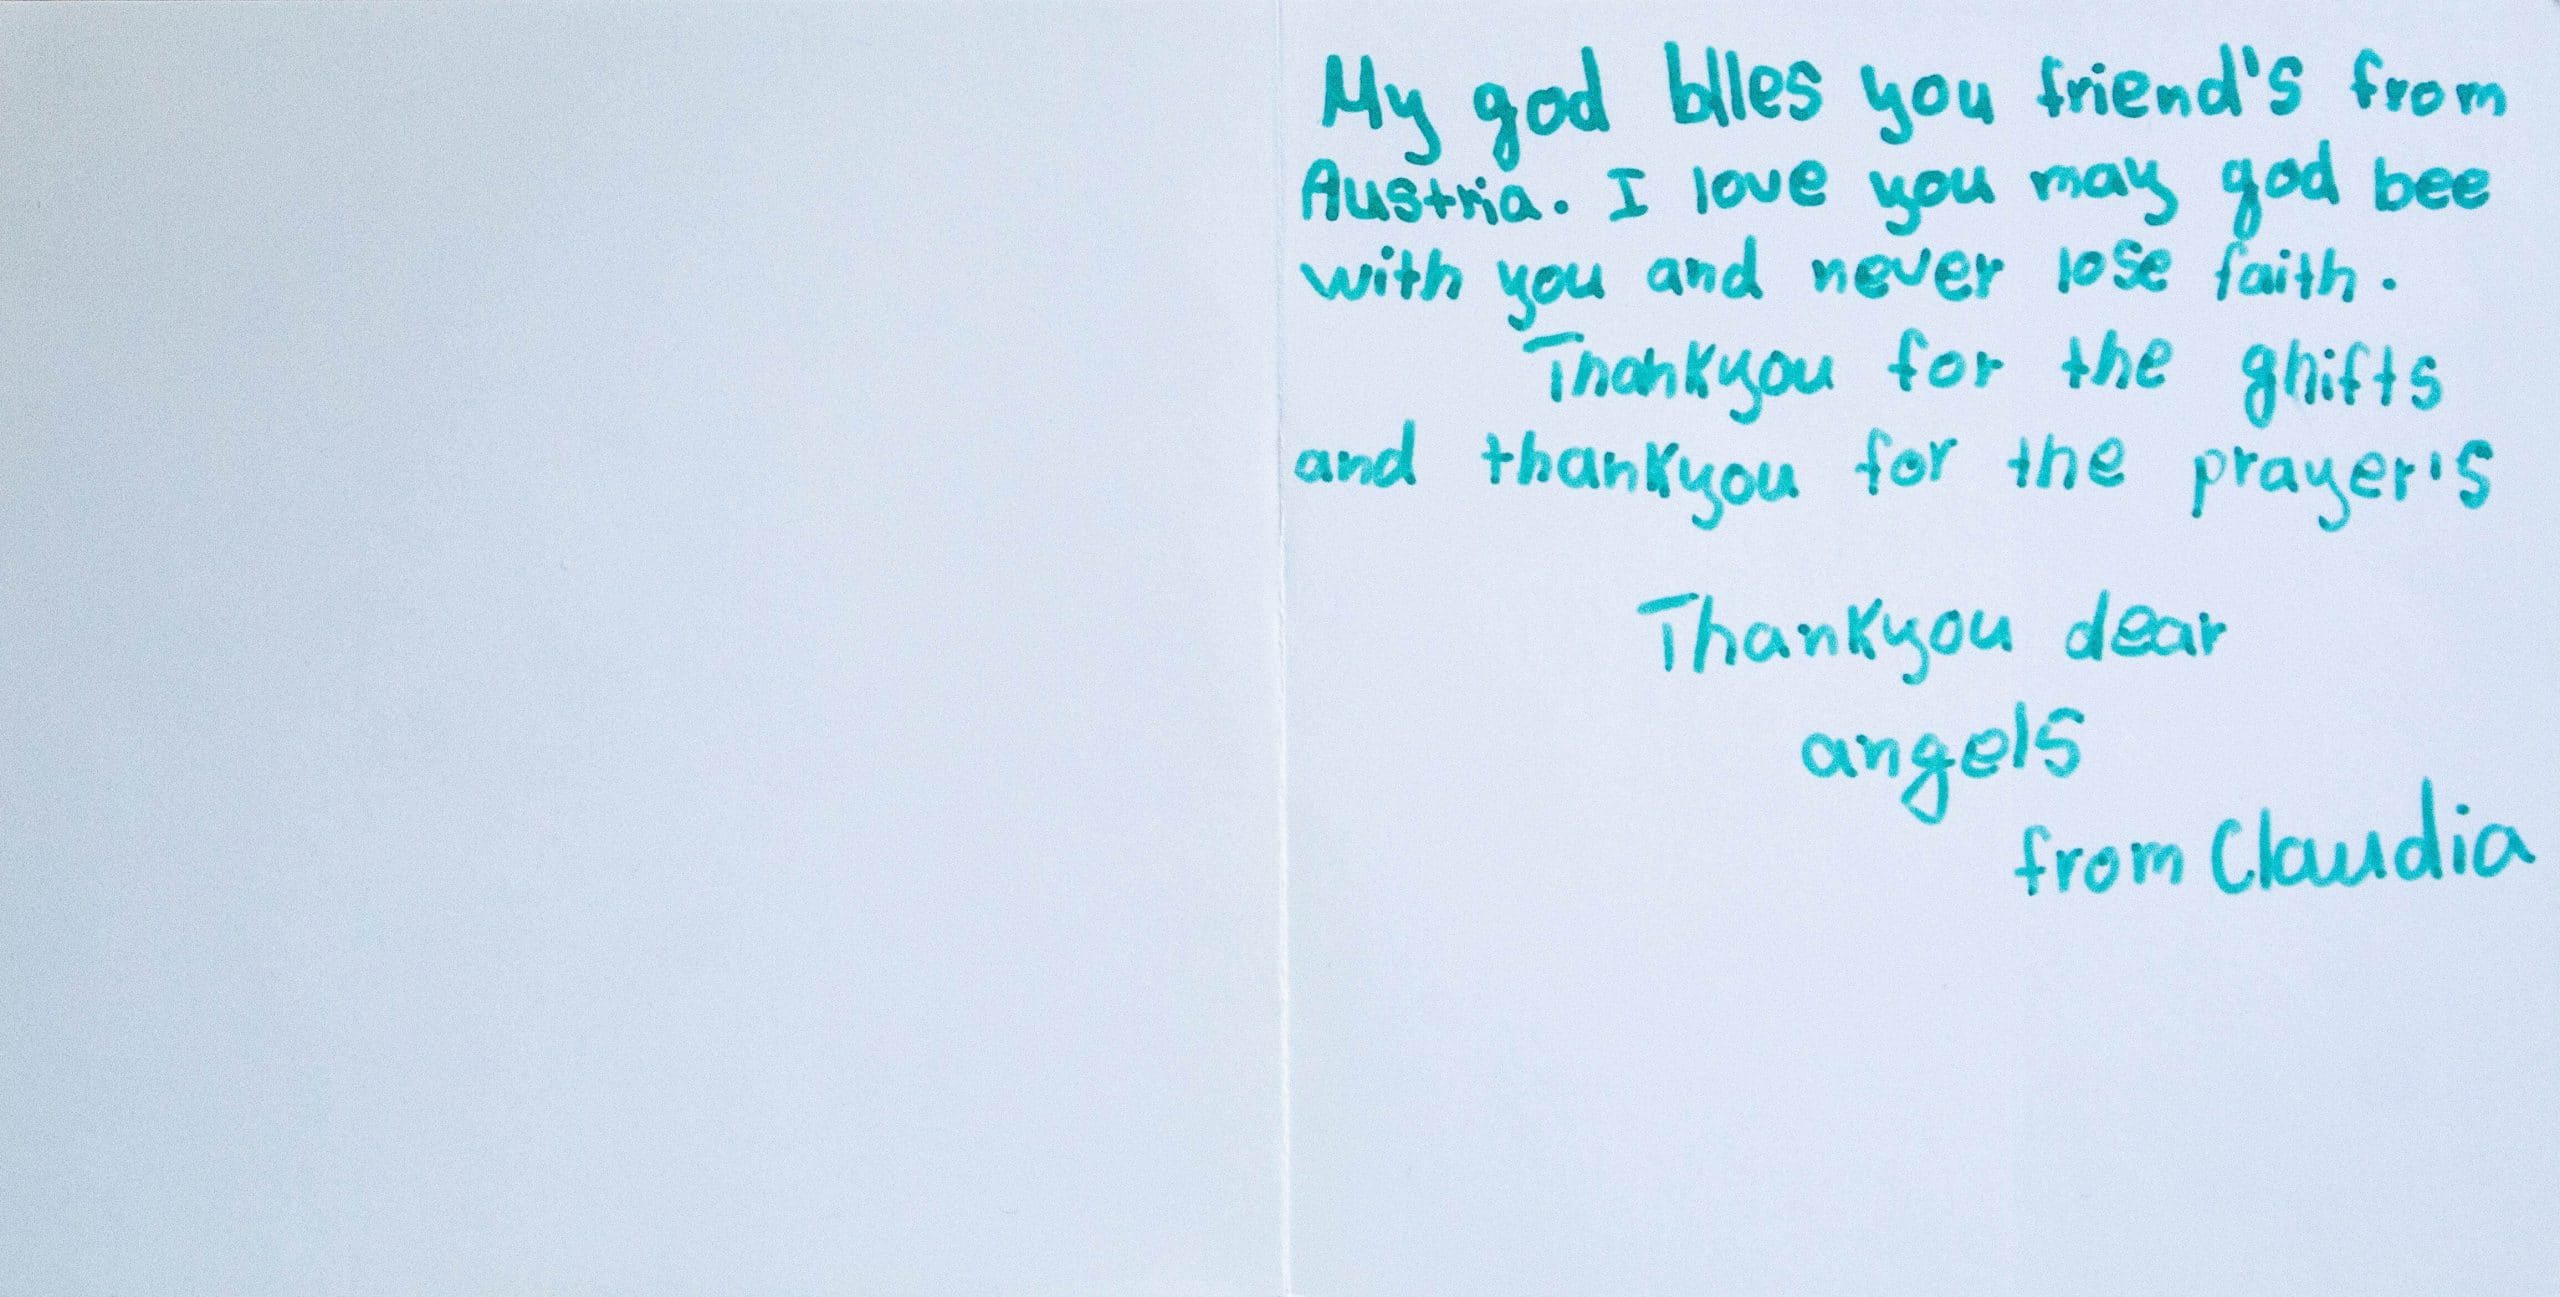 My god blles you friend's from
Austria. I love you may god bee
with you and never lose faith.
Thankyou for the ghifts
and thankyou for the prayer's
Thankyou dear
angels
from Claudia